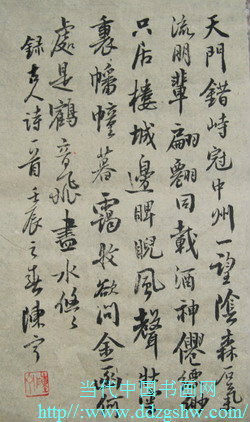 天門錯峙冠中州一望陰森石氣
流朋輩翩翩同載酒神僊縹緲
只居樓城邊睥睨風聲壯
裏幡幢暮靄收欲問金
處是鶴音飛盡水悠々
錄古人詩一首壬辰之春陳宇
当代中国书画网
www.ddzgshw.com